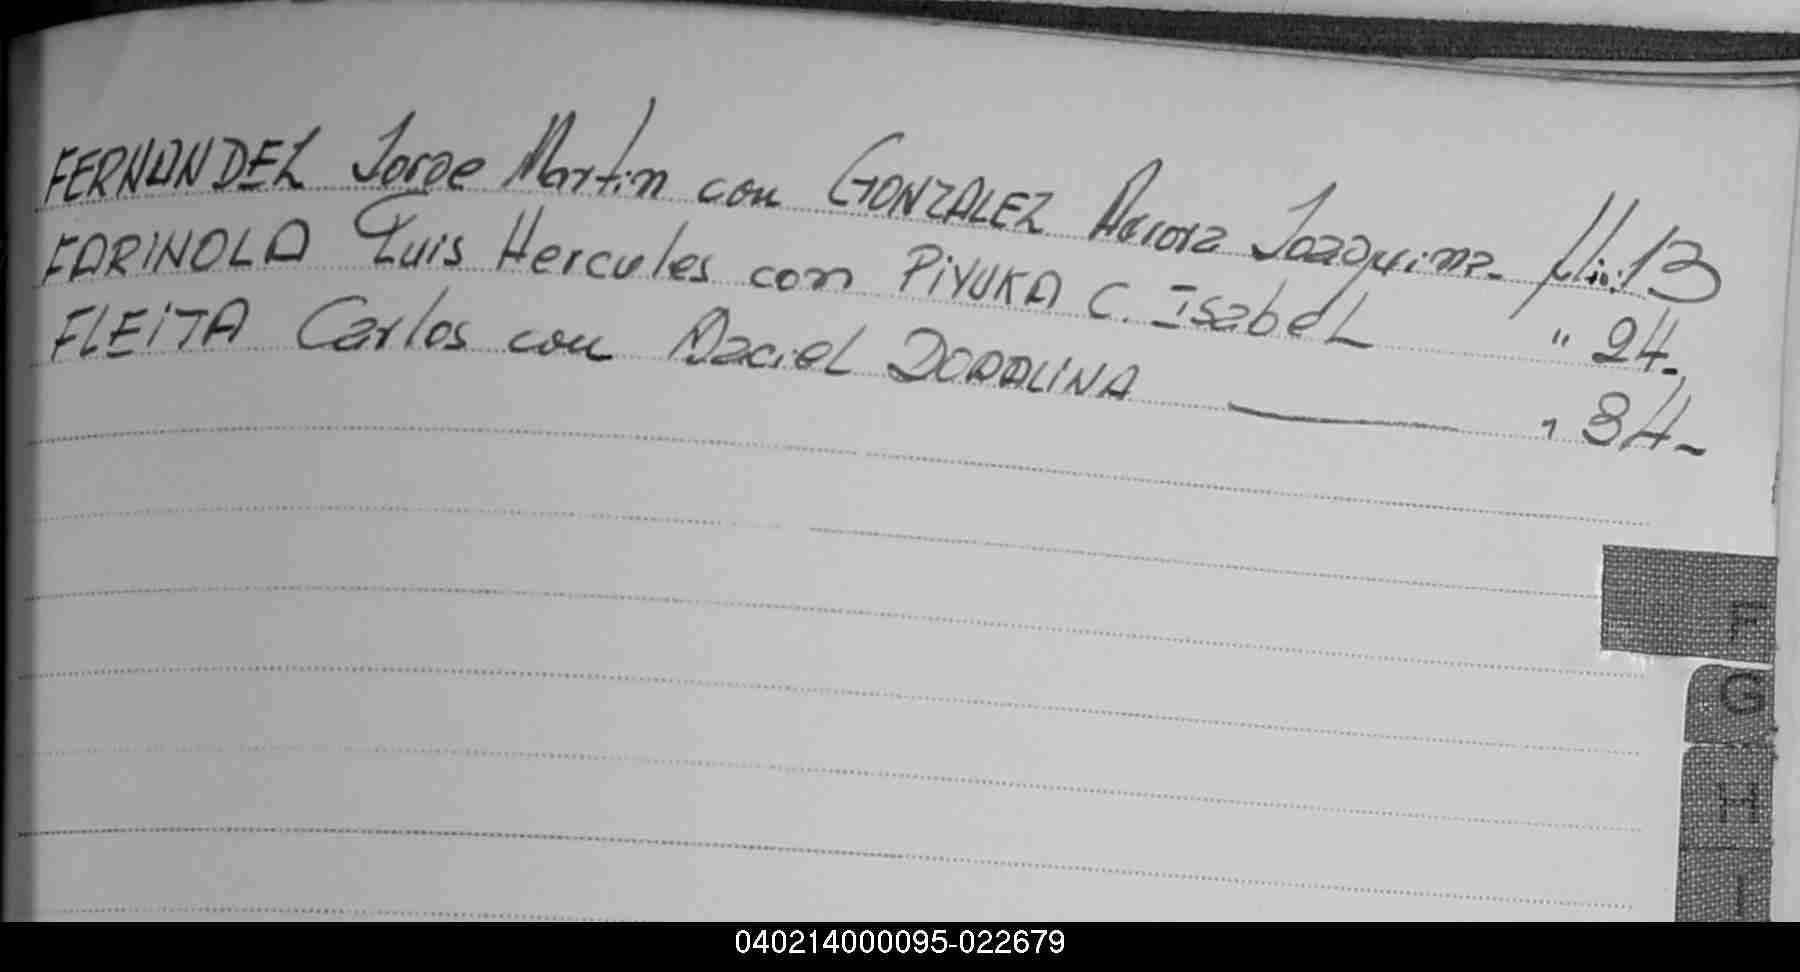 FERNANDEZ Jorge Martin con GONZALEZ Aurora Joaquina flio. 13
FARINOLA Luis Hercules con PIYUKA C. Isabel " 24.
FLEITA Carlos con Maciel DORALINA " 34-
F
G
H
I
040214000095-022679